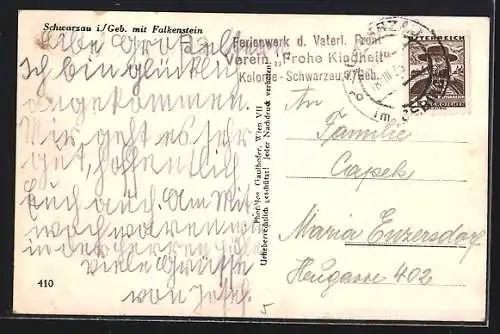 Schwarzau i/Geb. mit Falkenstein
Liebe Großeltern
Ich bin glücklich
angekommen.
Mir geht es sehr
gut, hoffentlich
Euch auch. Am Mit
woch waren wir
in der
Viele Grüße
von Josef.
410
Photohlos Gaulhofer, Wien VII
Urheberrechtlich geschützt! Jeder Nachdruck verboten!
Ferienwerk d. Vaterl. Front
Verein „Frohe Kindheit"
Kolonie - Schwarzau, i/Geb.
ÖSTERREICH
An
Familie
Capek
Maria Enzersdorf
Heugasse 402